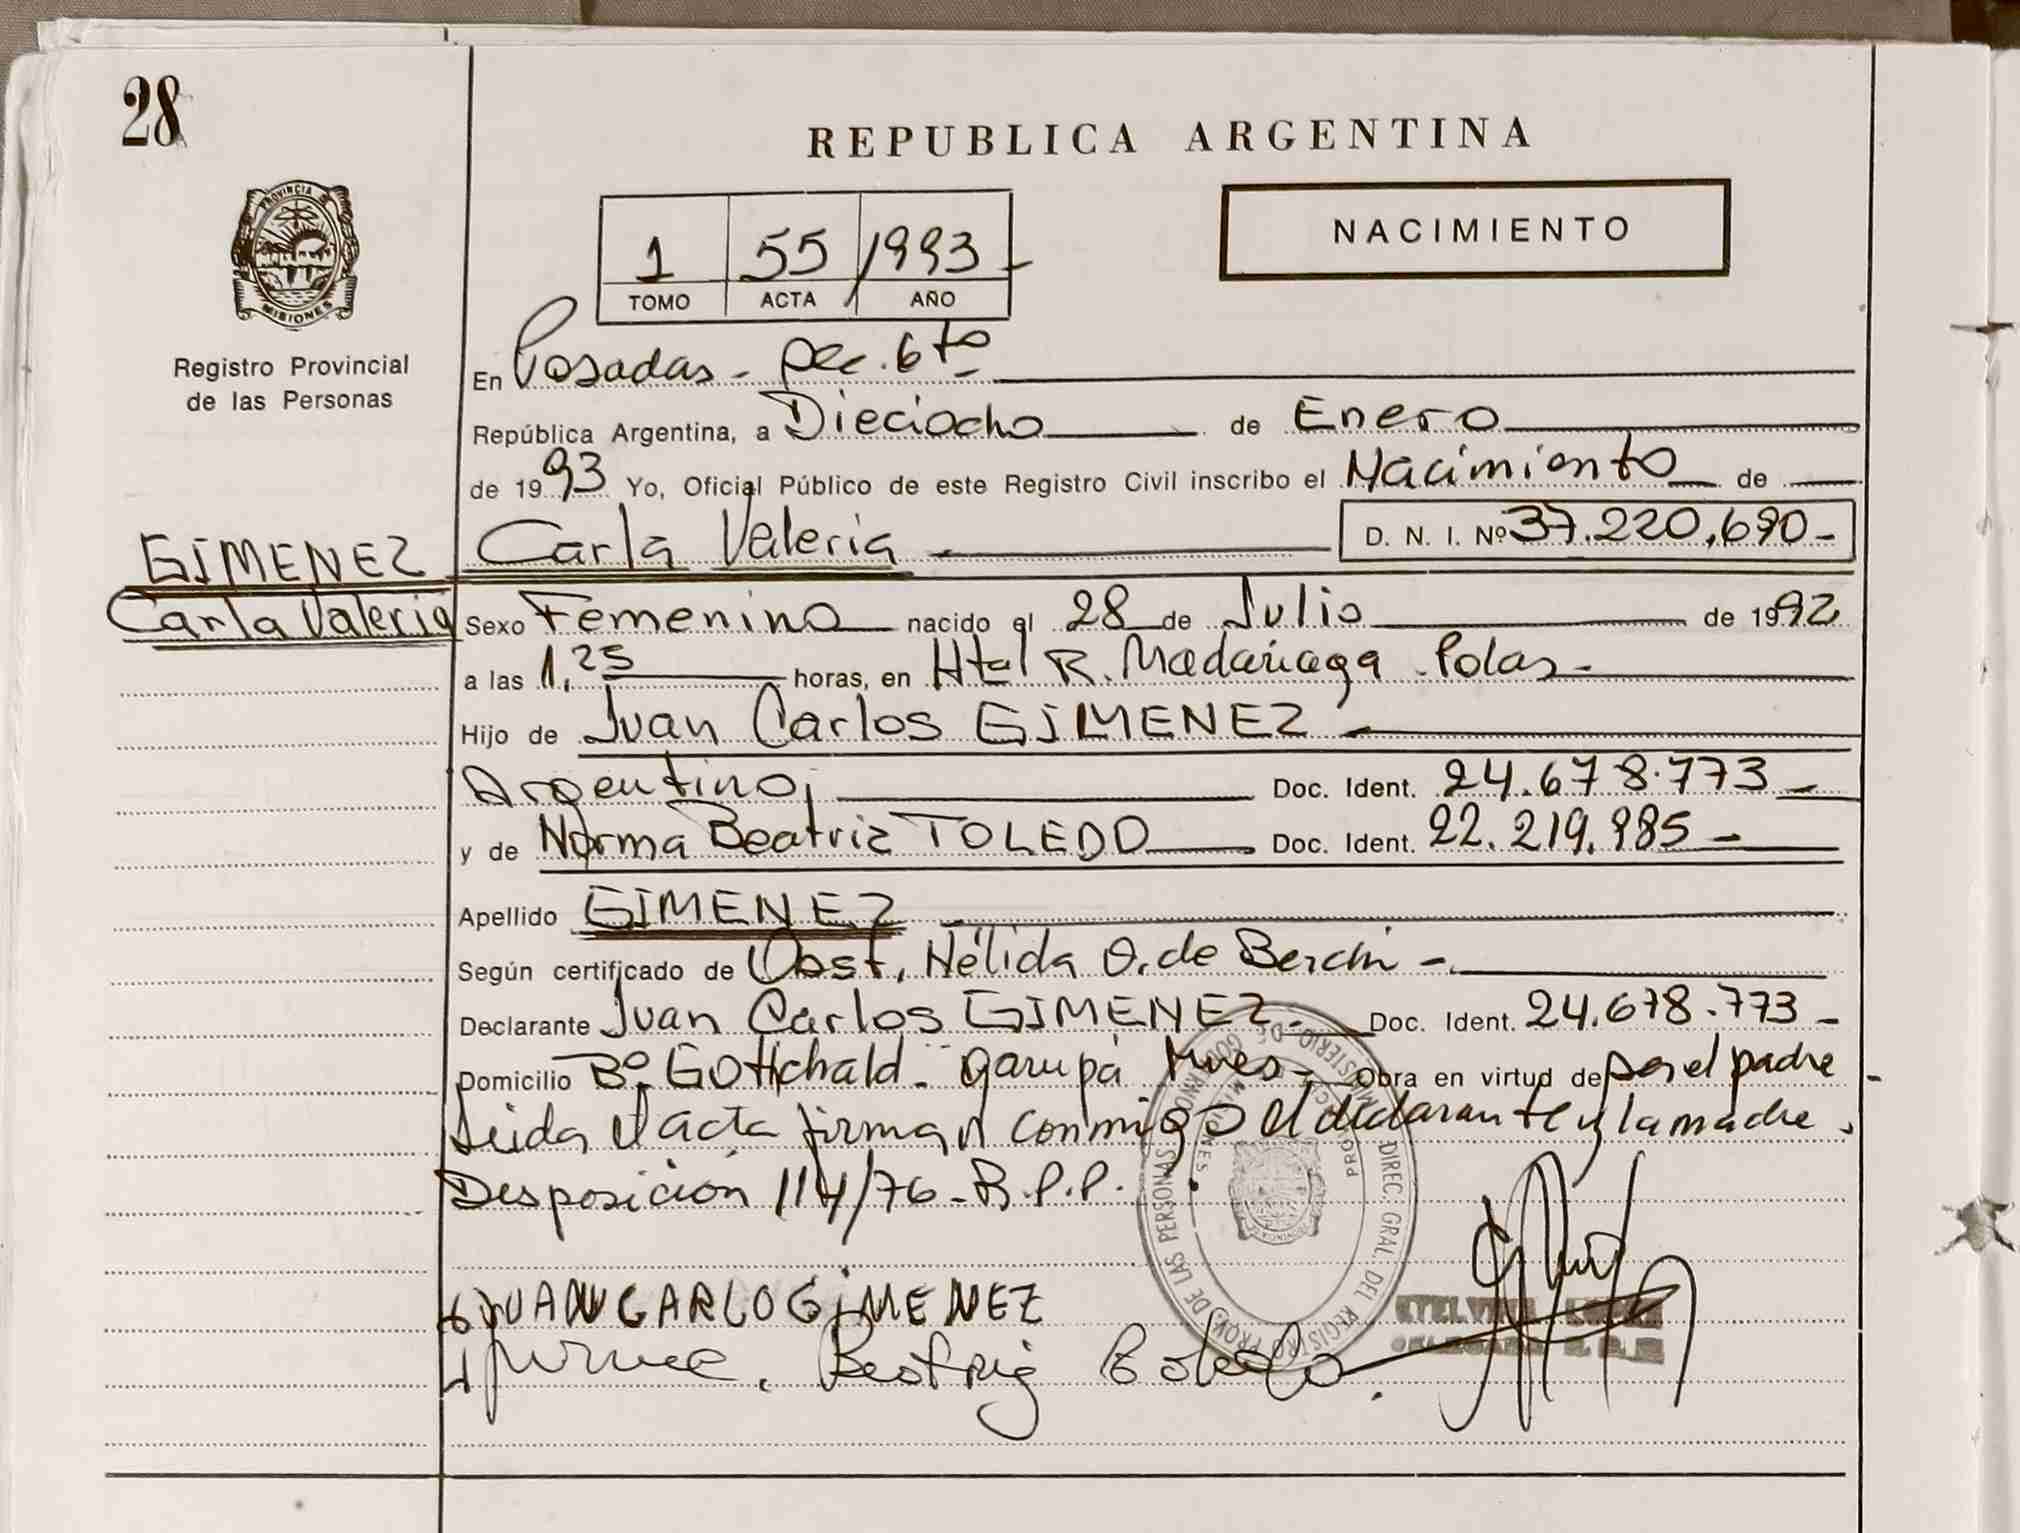 28
REPUBLICA ARGENTINA
NACIMIENTO
1 55 1993
TOMO ACTA AÑO
PROVINCIA DE
MISIONES
Registro Provincial
de las Personas
En Posadas - Secc. 6to
República Argentina, a Dieciocho de Enero
de 1993 Yo, Oficial Público de este Registro Civil inscribo el Nacimiento de
GIMENEZ
Carla Valeria
Carla Valeria D. N. I. Nº 37.220.690-
Sexo Femenino nacido el 28 de Julio de 1992
a las 1,25 horas, en Htal R. Madariaga Pdas-
Hijo de Juan Carlos GIMENEZ -
Argentino, Doc. Ident. 24.678.773-
y de Norma Beatriz TOLEDO Doc. Ident. 22.219.985-
Apellido GIMENEZ
Según certificado de Obst. Nélida O. de -
Declarante Juan Carlos GIMENEZ- Doc. Ident. 24.678.773-
Domicilio Bº Gottchald - Garupá Mnes- Obra en virtud de ser el padre
Leida el acta firman conmigo el declarante y la madre.
Desposición 114/76-R.P.P.
MINISTERIO DE GOBIERNO
DIREC. GRAL. DEL REGISTRO PROV. DE LAS PERSONAS
PROVINCIA
MISIONES
JUAN CARLO GIMENEZ
Beatriz Toledo.